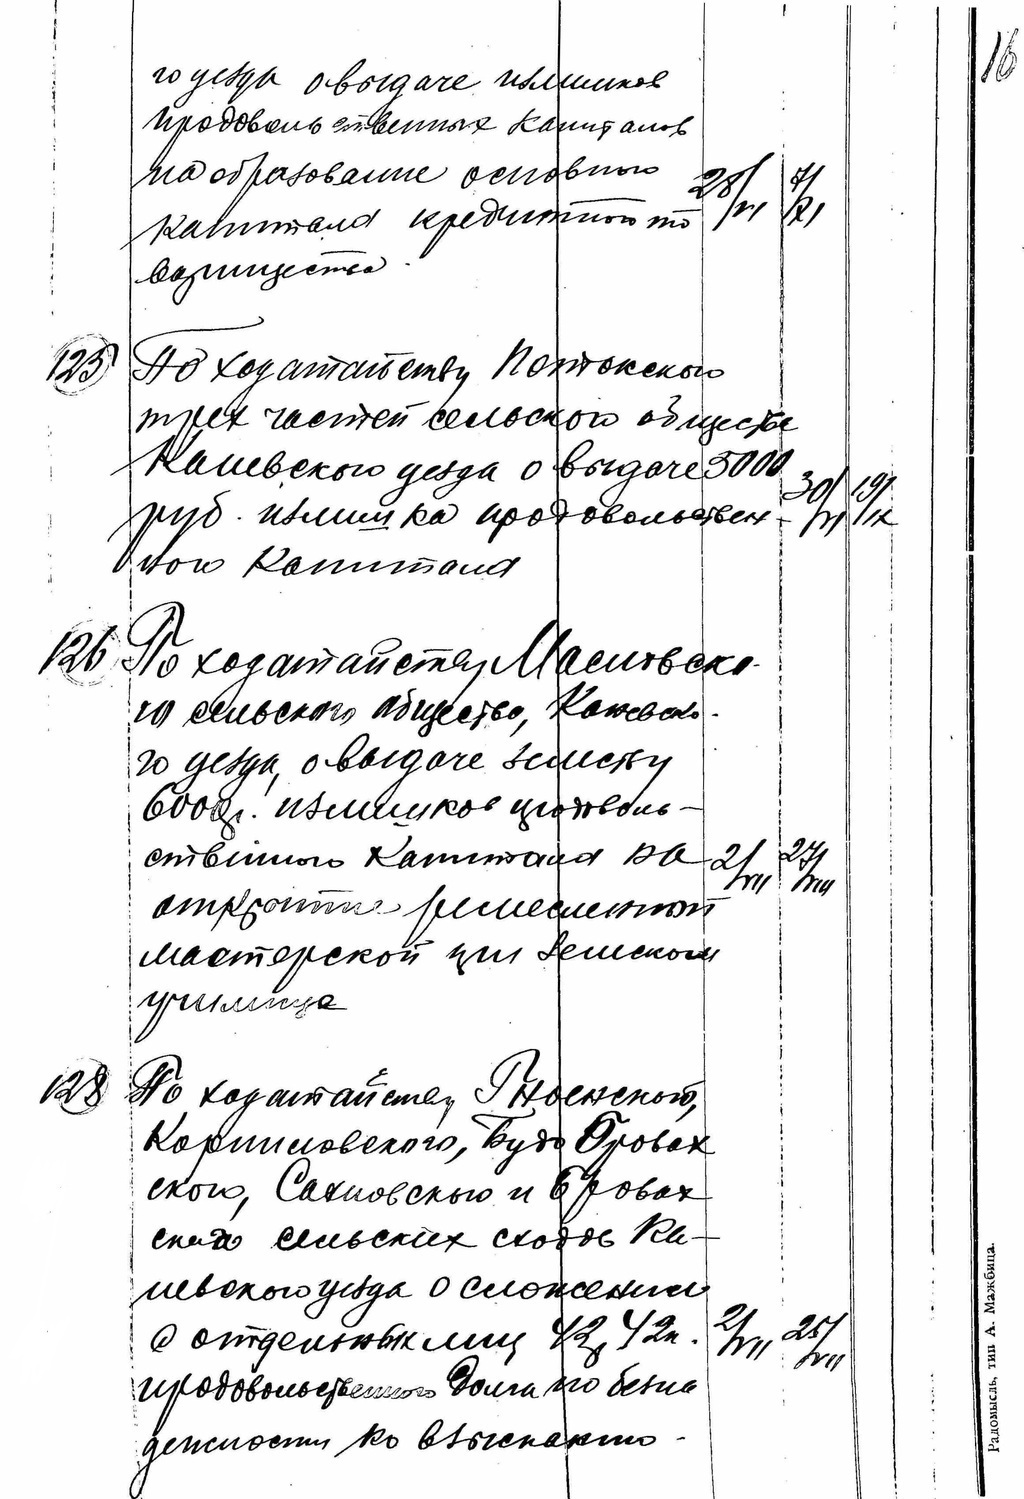 16
го уезда о выдаче излишков
продовольственных капиталов
на образование основного 28/VI 7/XI
капитала кредитного то
варищества.
125 По ходатайству Потокского
трех частей сельского общества
Каневского уезда о выдаче 5000
руб. излишка продовольствен- 30/VI 19/IX
ного капитала
126 По ходатайству Масловско-
го сельского общества, Каневско-
го уезда, о выдаче земству
600 р. излишков продоволь-
ственного капитала на 2/VII 27/VIII
открытие ремесленной
мастерской при Земском
училище
128 По ходатайству Гноенского,
Корниловского, Будо Бровах
ского, Сахновского и Бровах
ского сельских сходов Ка-
невского уезда о сложении
с отдельных лиц 42 к. 2/VII 25/VII
продовольственного долга по безна
дежности ко взысканию.
Радомысль, тип А. Мажбица.